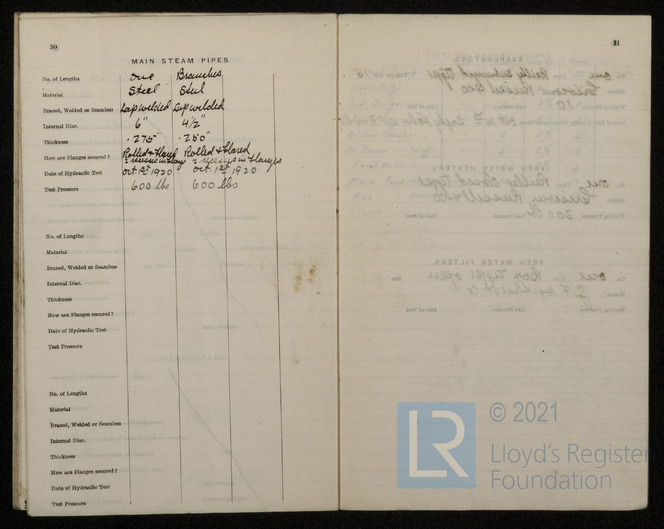 30
MAIN STEAM PIPES.
No. of Lengths One Branches
Material Steel Steel
Brazed, Welded or Seamless Lap welded Lap welded
Internal Diar. 6" 4½"
Thickness .275" .250"
How are Flanges secured? Rolled & flared Rolled & flared
Date of Hydraulic Test Oct. 1st 1920 Oct. 1st 1920
Test Pressure 600 lbs 600 lbs
No. of Lengths
Material
Brazed, Welded or Seamless
Internal Diar.
Thickness
How are Flanges secured?
Date of Hydraulic Test
Test Pressure
No. of Lengths
Material
Brazed, Welded or Seamless
Internal Diar.
Thickness
How are Flanges secured?
Date of Hydraulic Test
Test Pressure
31
LR
© 2021
Lloyd's Register
Foundation